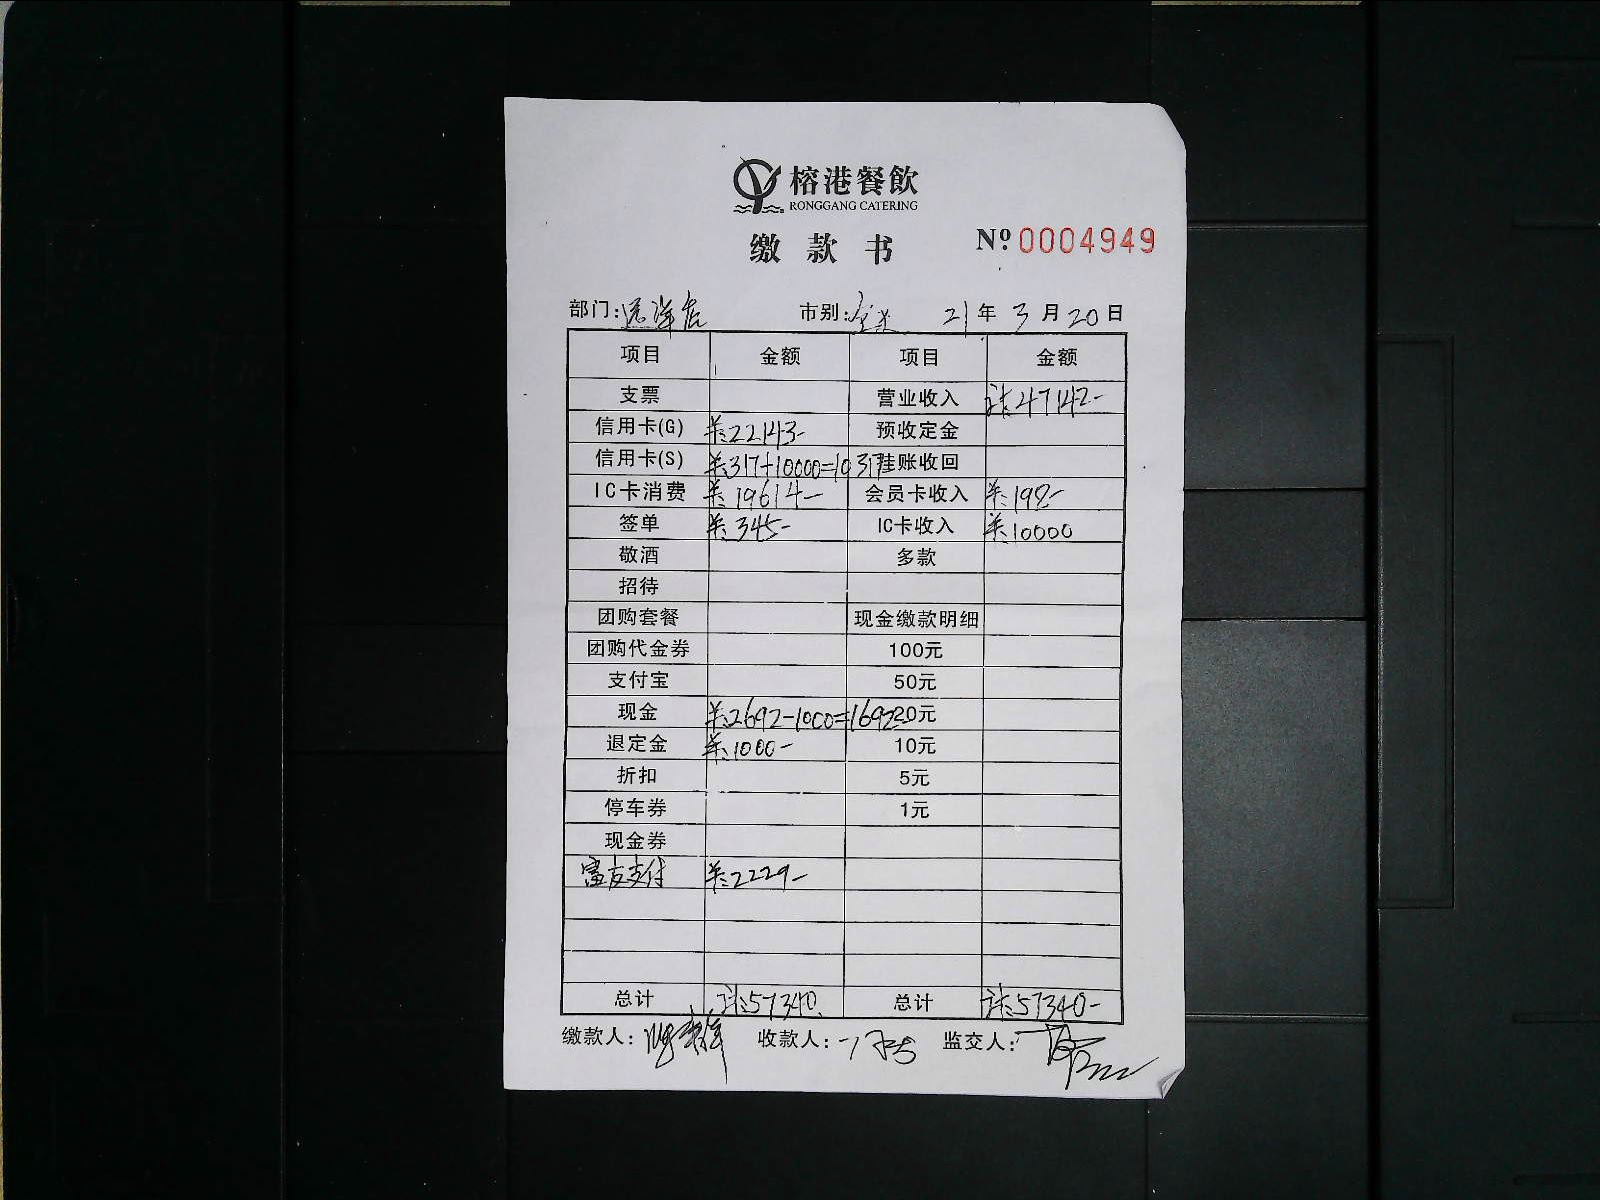 榕港餐飲
RONGGANG CATERING
缴款书
Nº 0004949
部门:远洋店 市别:全天 21年3月20日
项目 金额 项目 金额
支票 营业收入 计:47142-
信用卡(G) ¥:22143- 预收定金
信用卡(S) ¥:317+10000=10317 挂账收回
IC卡消费 ¥:19614- 会员卡收入 ¥:198-
签单 ¥:345- IC卡收入 ¥:10000
敬酒 多款
招待
团购套餐 现金缴款明细
团购代金券 100元
支付宝 50元
现金 ¥:2692-1000=1692 20元
退定金 ¥:1000- 10元
折扣 5元
停车券 1元
现金券
富友支付 ¥:2229-
总计 计:57340. 总计 计:57340-
缴款人: 收款人: 监交人: